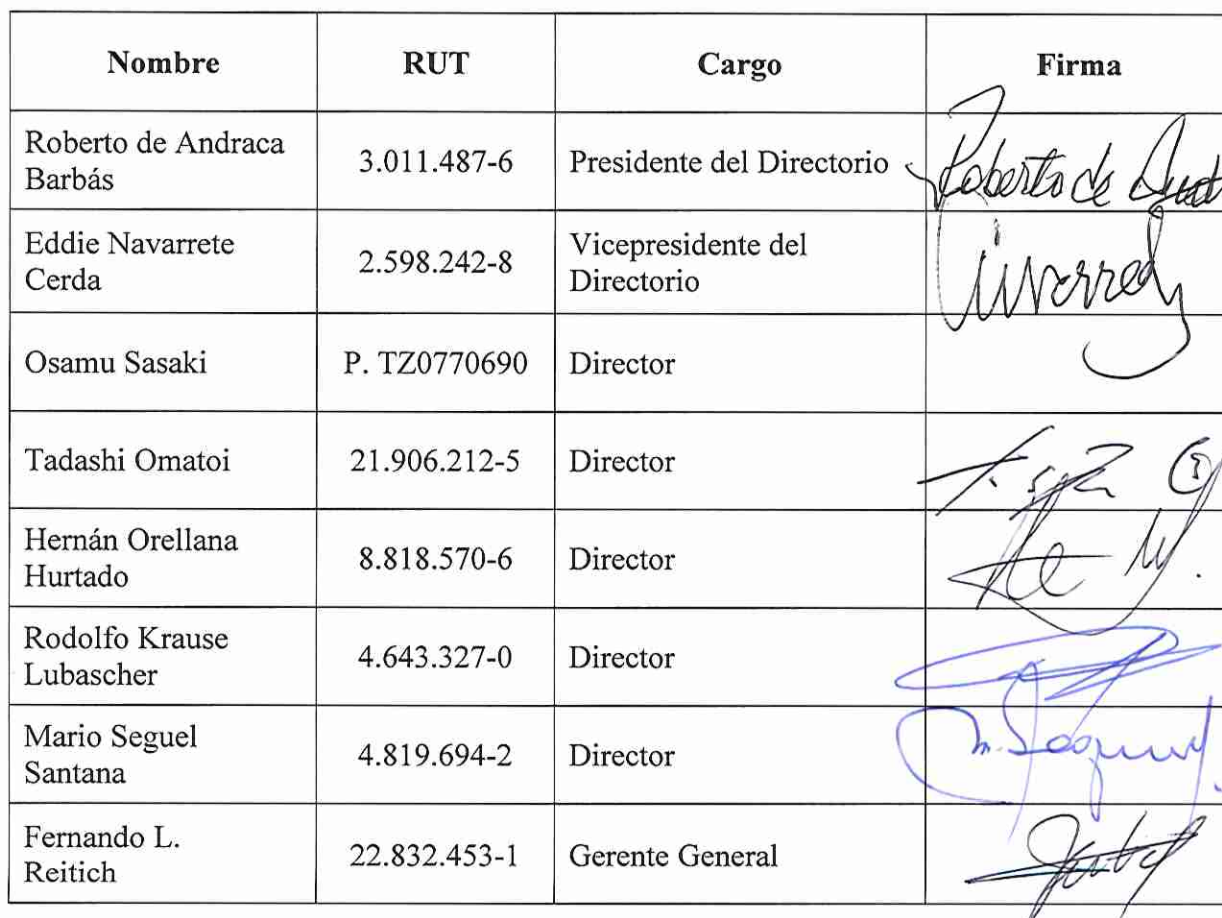 Nombre RUT Cargo Firma
Roberto de Andraca
Barbás
3.011.487-6
Presidente del Directorio
Roberto de
Eddie Navarrete
Cerda
2.598.242-8
Vicepresidente del
Directorio
Osamu Sasaki
P. TZ0770690
Director
Tadashi Omatoi
21.906.212-5
Director
Hernán Orellana
Hurtado
8.818.570-6
Director
Rodolfo Krause
Lubascher
4.643.327-0
Director
Mario Seguel
Santana
4.819.694-2
Director
Fernando L.
Reitich
22.832.453-1
Gerente General